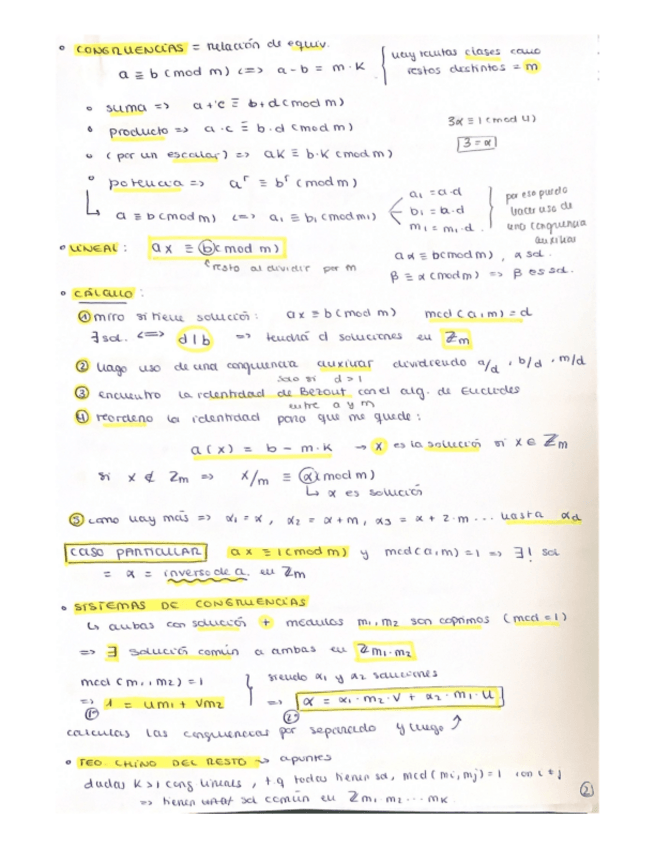 • CONGRUENCIAS = relación de equiv.
a ≡ b (mod m) <=> a - b = m · K
{ hay tantas clases como
restos distintos = m
• suma => a + c ≡ b + d (mod m)
• producto => a · c ≡ b · d (mod m)
3α ≡ 1 (mod 4)
3 = α
• (por un escalar) => aK ≡ b · K (mod m)
• potencia => a^r ≡ b^r (mod m)
↳ a ≡ b (mod m) <=> a₁ ≡ b₁ (mod m₁)
a₁ = a · d
b₁ = b · d
m₁ = m₁ · d
} por eso puedo
hacer uso de
una congruencia
auxiliar
• LINEAL: ax ≡ b (mod m)
resto al dividir por m
aα ≡ b (mod m), α sol.
β ≡ α (mod m) => β es sol.
• CÁLCULO:
① miro si tiene solución: ax ≡ b (mod m) mcd (a, m) = d
∃ sol. <=> d | b => tendrá d soluciones en ℤm
② hago uso de una congruencia auxiliar dividiendo a/d, b/d, m/d
solo si d > 1
③ encuentro la identidad de Bezout con el alg. de Euclides
entre a y m
④ reordeno la identidad para que me quede:
a(x) = b - m · K → x es la solución si x ∈ ℤm
si x ∉ ℤm => x/m ≡ α (mod m)
↳ α es solución
⑤ como hay más => α₁ = α, α₂ = α + m, α₃ = α + 2 · m ... hasta αd
CASO PARTICULAR ax ≡ 1 (mod m) y mcd (a, m) = 1 => ∃! sol
= α = inverso de a en ℤm
• SISTEMAS DE CONGRUENCIAS
↳ ambas con solución + módulos m₁, m₂ son coprimos (mcd = 1)
=> ∃ solución común a ambas en ℤm₁·m₂
mcd (m₁, m₂) = 1 } siendo α₁ y α₂ soluciones
=> 1 = um₁ + vm₂ => α = α₁ · m₂ · v + α₂ · m₁ · u
calculas las congruencias por separado y luego ↑
• TEO. CHINO DEL RESTO → apuntes
dadas K > 1 cong lineales, t.q todas tienen sol, mcd (mi, mj) = 1 con i ≠ j
=> tienen sol común en ℤm₁·m₂...mK
②